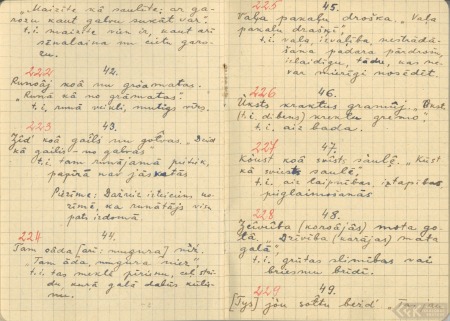 "Maizīte kā saulīte; ar ga-
rozu kaut galvu sukāt var."
t.i. maizīte vien ir, kaut arī
sēnalaina un cietu garo-
zu.
222 42.
Runoāj koā nu groāmatas.
"Runā kā no grāmatas."
t.i. runā veikli, mutīgs vīrs.
223 43.
koā gails nu golvas.
kā gailis no galvas"
t.i. tam runājamā pietiek,
papīrā nav jāskatās
Piezīme: Dažreiz izteiciens no-
zīmē, ka runātājs vien
pats izdomā.
224 44.
Tam oāda [arī: mugura]
"Tam āda, mugura niez"
t.i. tas meklē pērienu, ceļ strī-
du, kurā galā dabūs kūlie-
nu.
225 45.
Vaļa pakaļu droška. "Vaļa
pakaļu drošķi"
t.i. vaļa, ievalība, nestrādā-
šana padara pārdrošu,
izlaidīgu, tādu, kas ne-
var mierīgi nosēdēt.
226 46.
Ūksts krūktus gramūj.
(t.i. dibens) gremo".
t.i. aiz bada.
227 47.
koā saulē. "Kūst
kā sviests saulē.
t.i. aiz laipnības, iztapības,
pieglaimošanās
228 48.
Dzeivība (koroājās) mota go-
lā. "Dzīvība (karājas) mata
galā"
t.i. grūtas slimības vai
briesmu brīdī.
229 49.
[Tys] jou soltu